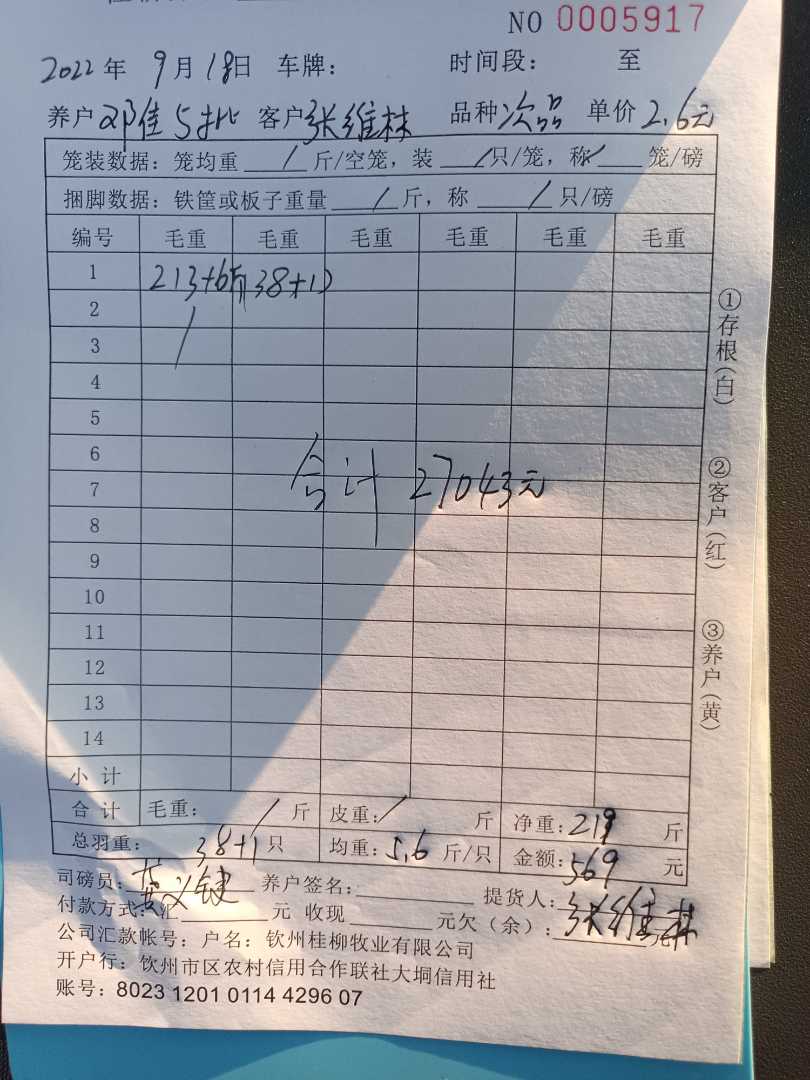 NO 0005917
2022年 9月18日 车牌： 时间段： 至
养户 邓佳5批 客户 张维林 品种 次品 单价 2.6元
笼装数据：笼均重 / 斤/空笼，装 / 只/笼，称 / 笼/磅
捆脚数据：铁筐或板子重量 / 斤，称 / 只/磅
编号 毛重 毛重 毛重 毛重 毛重 毛重
1 213+6斤 38+1只
2
3
4
5
6
合计 27043元
7
8
9
10
11
12
13
14
小计
合计 毛重： / 斤 皮重： / 斤 净重：219 斤
总羽重： 38+1只 均重：5.6 斤/只 金额：569 元
司磅员： 养户签名： 提货人：张维林
付款方式：汇 元 收现 元欠（余）： 元
公司汇款帐号：户名：钦州桂柳牧业有限公司
开户行：钦州市区农村信用合作联社大垌信用社
账号：8023 1201 0114 4296 07
①存根（白）
②客户（红）
③养户（黄）